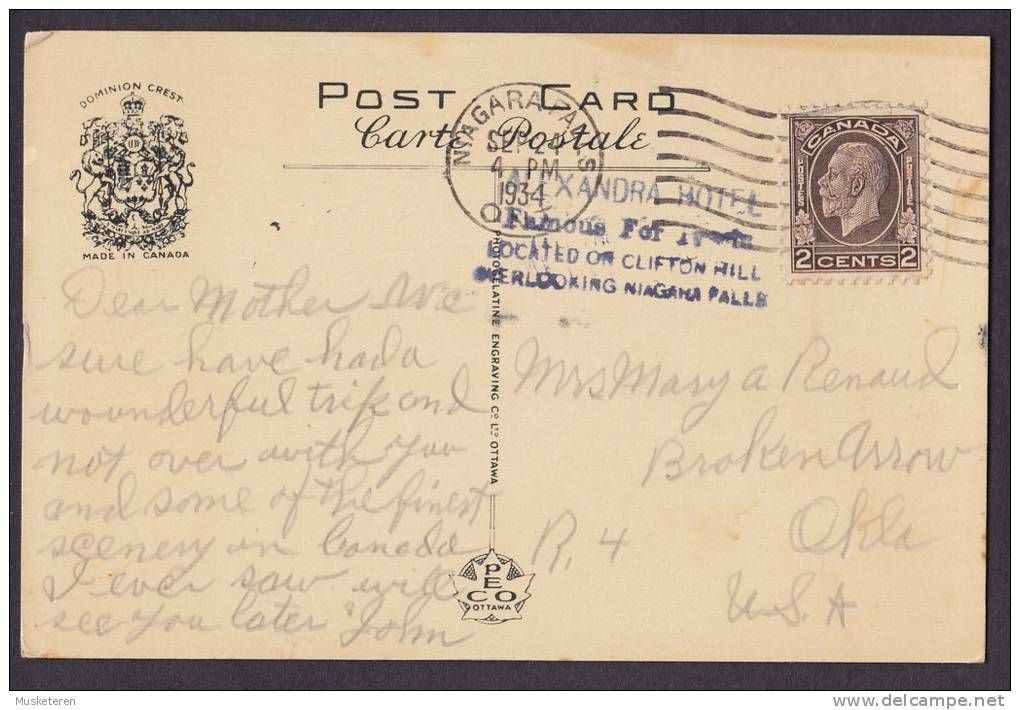 DOMINION CREST
MADE IN CANADA
POST CARD
Carte Postale
NIAGARA FALLS
SEP 24
4 PM
1934
ONT
ALEXANDRA HOTEL
Famous For
LOCATED ON CLIFTON HILL
OVERLOOKING NIAGARA FALLS
CANADA
POSTES
POSTAGE
2 CENTS 2
Dear Mother We
sure have had a
wounderful trip and
not over with you
and some of the finest
scenery in Canada
I ever saw will
see you later John
PHOTOGELATINE ENGRAVING CO LTD OTTAWA
PECO
OTTAWA
Mrs Mary a Renaud
Broken Arrow
R. 4 Okla
U.S.A
Musketeren
www.delcampe.net